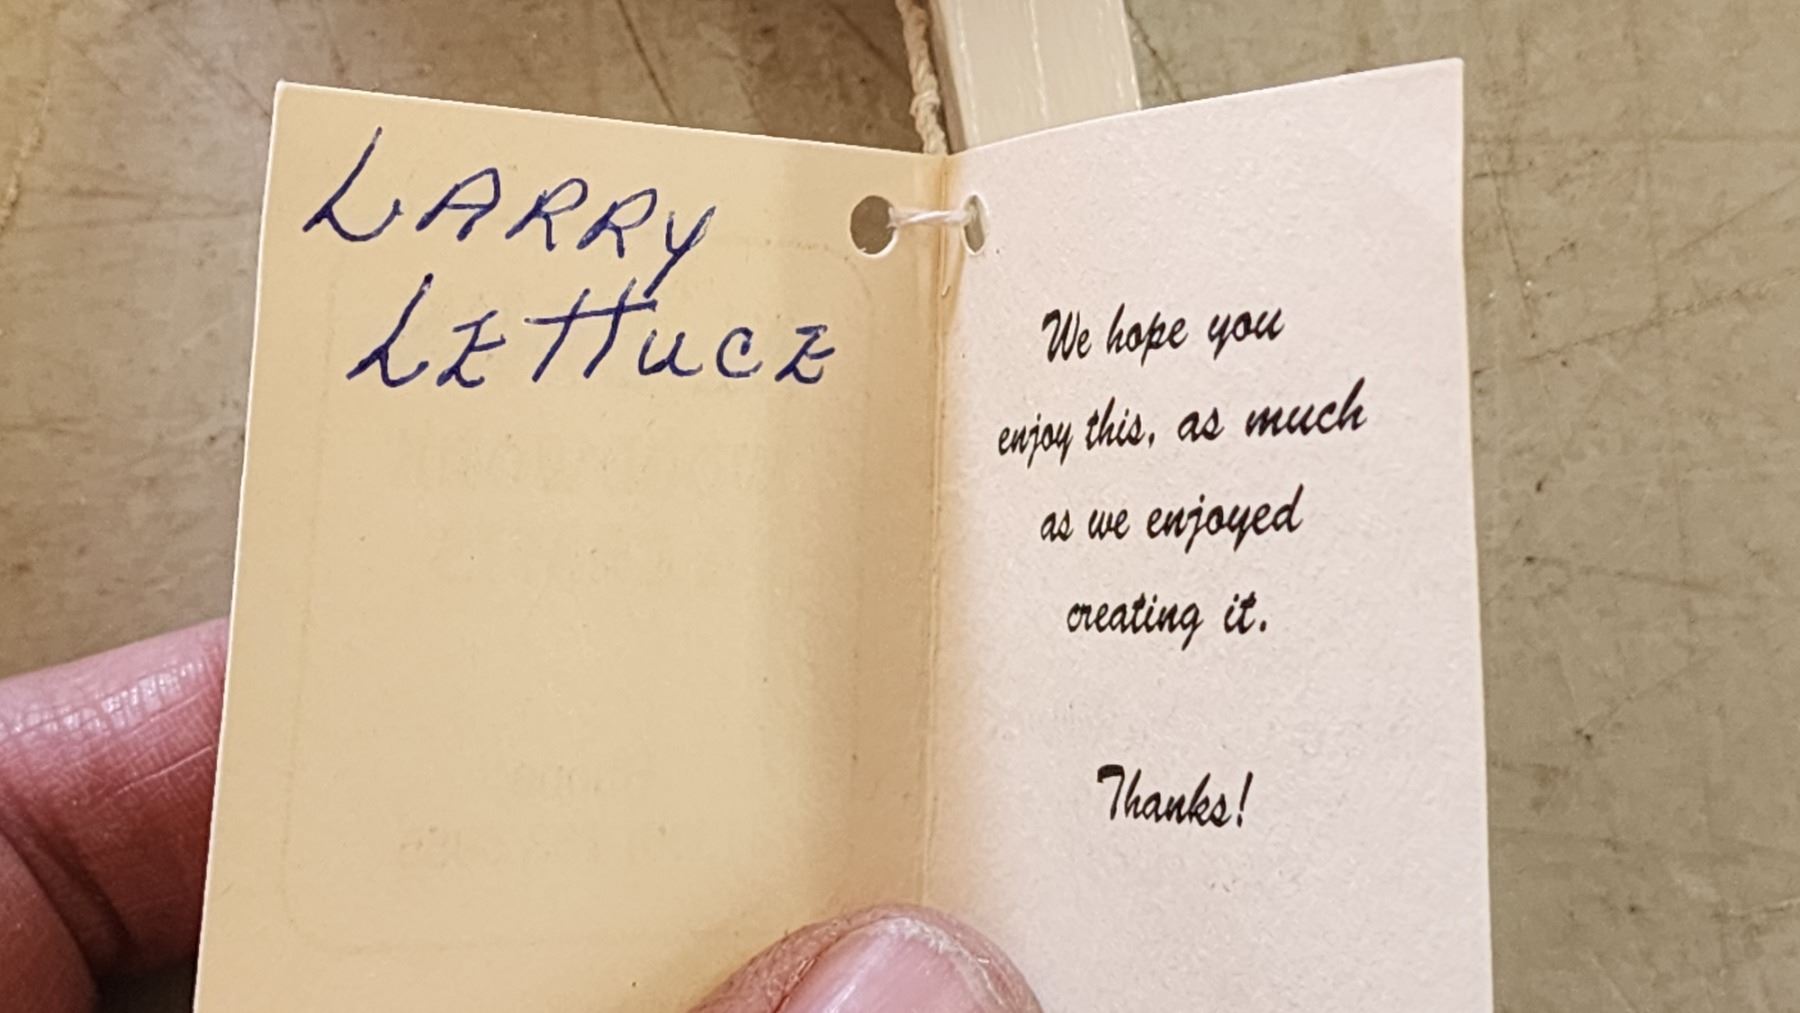 LARRY
LETTUCE
We hope you
enjoy this, as much
as we enjoyed
creating it.
Thanks!